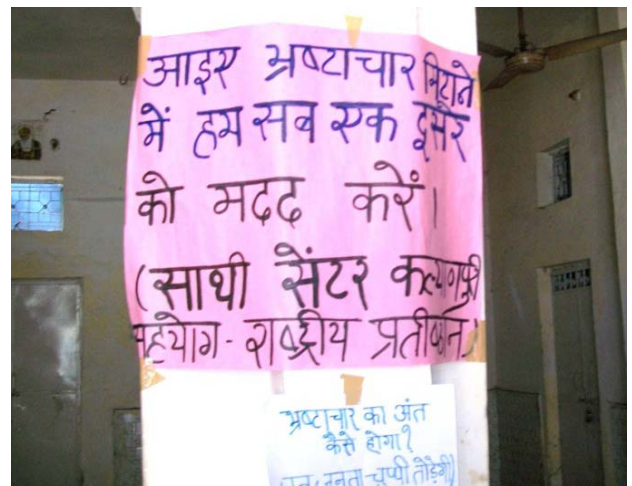 आइए भ्रष्टाचार मिटाने
में हम सब एक दूसरे
को मदद करें।
(साथी सेंटर कल्याणपुरी
सहयोग - राष्ट्रीय
भ्रष्टाचार का अंत
कैसे होगा?
जनता चुप्पी तोड़ेगी